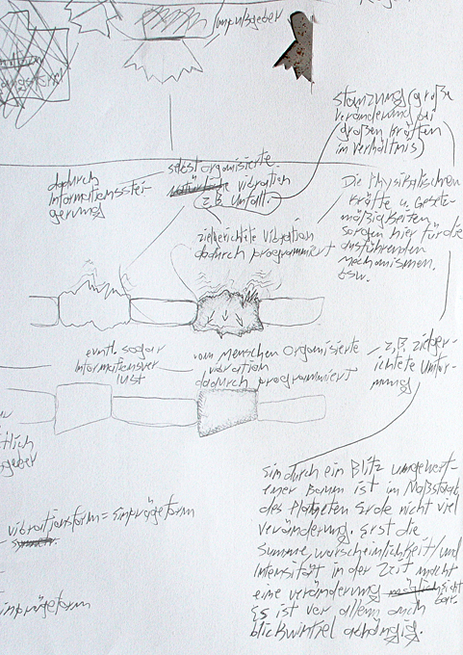 Impulsgeber
Stanzung (große
veränderung bei
großen kräften
im verhältnis)
selbstorganisierte
vibration
z.B. Unfall.
dadurch
Informationsstei-
gerung
Die Physikalischen
Kräfte u. Gesetz-
mäßigkeiten
sorgen hier für die
ausführenden
mechanismen.
usw.
zielgerichtete vibration
dadurch programmiert
evntl. sogar
Informationsver
lust
vom menschen Organisierte
vibration
dadurch programmiert
z.B. zielger-
ichtete Umfor-
mung
tlich
sgeber
vibrationsform = einprägeform
einprägeform
Ein durch ein Blitz umgeworf-
ener Baum ist im Maßstab
des Planeten Erde nicht viel
veränderung. Erst die
Summe, warscheinlichkeit/und
Intensität in der Zeit macht
eine veränderung sicht
bar.
Es ist vor allem auch
blickwinkel abhängig.